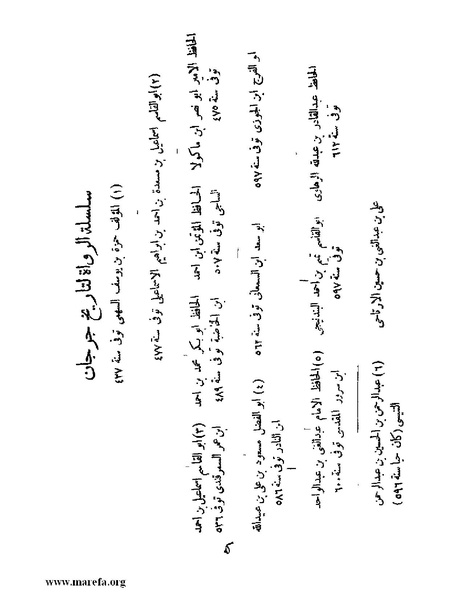 سلسلة الرواة لتاريخ جرجان
(١) المؤلف حمزة بن يوسف السهمى توفى سنة ٤٢٧
(٢) ابو القاسم اسماعيل بن مسعدة بن احمد بن ابراهيم الاسماعيلى توفى سنة ٤٧٧
الحافظ الامير ابو نصر ابن ماكولا
توفى سنة ٤٧٥
الحافظ المؤتمن ابن احمد
الساجى توفى سنة ٥٠٧
الحافظ ابو بكر محمد بن احمد
ابن الخاضبة توفى سنة ٤٨٩
(٣) ابو القاسم اسماعيل بن احمد
ابن عمر السمرقندى توفى ٥٣٦
ابو الفرج ابن الجوزى توفى سنة ٥٩٧
ابو سعد ابن السمعانى توفى سنة ٥٦٢
(٤) ابو الفضل مسعود بن على بن عبيدالله
ابن النادر توفى سنة ٥٨٦
الحافظ عبدالقادر بن عبدالله الرهاوى
توفى سنة ٦١٢
ابو القاسم تميم بن احمد البندنيجى
توفى سنة ٥٩٧
(٥) الحافظ الامام عبدالغنى بن عبدالواحد
ابن سرور المقدسى توفى سنة ٦٠٠
على بن عبدالغنى بن حسين الارتاحى
(٦) عبدالرحمن بن الحسين بن عبدالرحمن
(كان حيا سنة ٥٩٦)
www.marefa.org